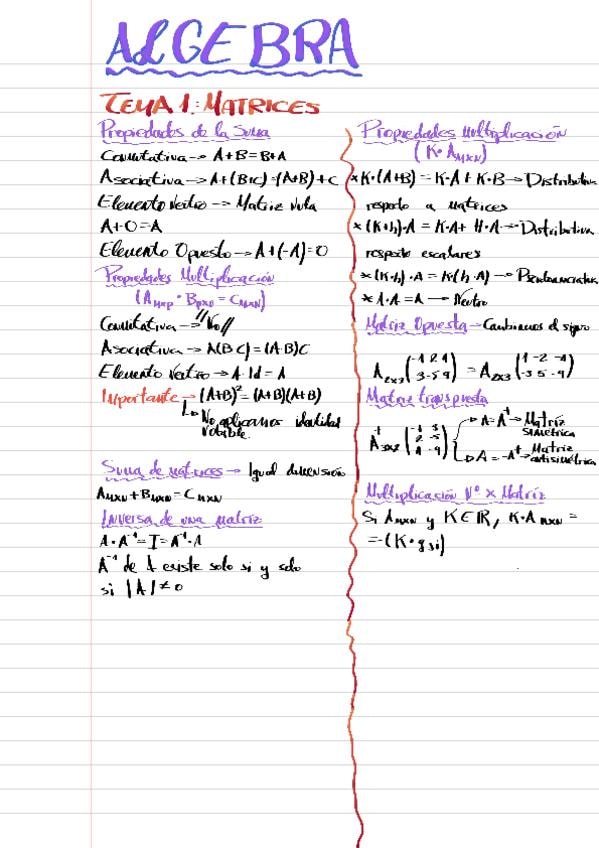 ALGEBRA
TEMA 1: MATRICES
Propiedades de la Suma
Conmutativa -> A+B=B+A
Asociativa -> A+(B+C)=(A+B)+C
Elemento Neutro -> Matriz Nula
A+O=A
Elemento Opuesto -> A+(-A)=0
Propiedades Multiplicación
(Amxp · Bpxn = Cmxn)
Conmutativa -> //No//
Asociativa -> A(B·C)=(A·B)C
Elemento Neutro -> A·Id=A
Importante -> (A+B)²=(A+B)(A+B)
↳ No aplicamos identidad
notable.
Suma de matrices -> Igual dimensión
Amxn+Bmxn=Cmxn
Inversa de una matriz
A·A⁻¹=I=A⁻¹·A
A⁻¹ de A existe solo si y solo
si |A|≠0
Propiedades Multiplicación
(K·Amxn)
*K·(A+B)=K·A+K·B -> Distributiva
respecto a matrices
*(K+h)·A=K·A+H·A -> Distributiva
respecto escalares
*(K·h)·A=K(h·A) ->
*1·A=A -> Neutro
Matriz Opuesta -> Cambiamos el signo
Matriz transpuesta
-> A=Aᵗ -> Matriz
simétrica
-> A=-Aᵗ -> Matriz
antisimétrica
Multiplicación Nº x Matriz
Si Amxn y K∈ℝ, K·Amxn=